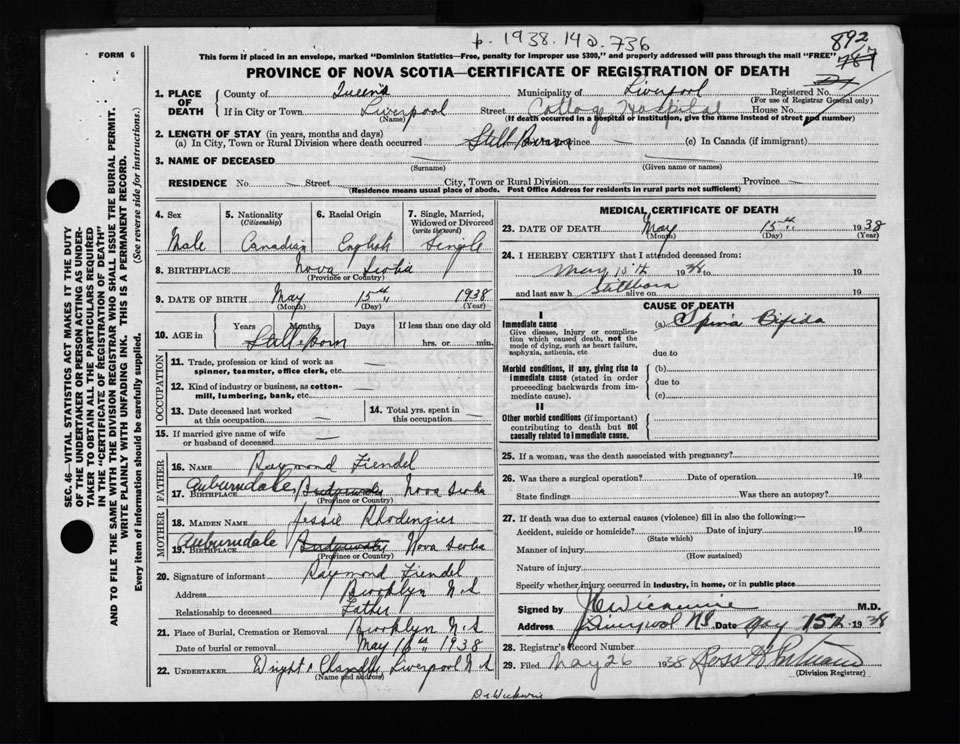 p. 1938. 14 a. 736
892
787
FORM 6
This form if placed in an envelope, marked "Dominion Statistics—Free, penalty for improper use $300," and properly addressed will pass through the mail "FREE"
PROVINCE OF NOVA SCOTIA—CERTIFICATE OF REGISTRATION OF DEATH
1. PLACE OF DEATH
County of Queens Municipality of Liverpool Registered No.
(For use of Registrar General only)
If in City or Town Liverpool Street Cottage Hospital House No.
(Name) (If death occurred in a hospital or institution, give the name instead of street and number)
2. LENGTH OF STAY (in years, months and days)
(a) In City, Town or Rural Division where death occurred Still Born Province (c) In Canada (if immigrant)
3. NAME OF DECEASED
(Surname) (Given name or names)
RESIDENCE No — Street City, Town or Rural Division — Province —
(Residence means usual place of abode. Post Office Address for residents in rural parts not sufficient)
4. Sex Male
5. Nationality (Citizenship) Canadian
6. Racial Origin English
7. Single, Married, Widowed or Divorced (write the word) Single
8. BIRTHPLACE Nova Scotia
(Province or Country)
9. DATE OF BIRTH May 15th 1938
(Month) (Day) (Year)
10. AGE in Years Months Days If less than one day old
Stillborn hrs. or min.
OCCUPATION
11. Trade, profession or kind of work as spinner, teamster, office clerk, etc.
12. Kind of industry or business, as cotton-mill, lumbering, bank, etc.
13. Date deceased last worked at this occupation
14. Total yrs. spent in this occupation
15. If married give name of wife or husband of deceased
FATHER
16. NAME Raymond Fiendel
17. BIRTHPLACE Auburndale, Bridgewater Nova Scotia
(Province or Country)
MOTHER
18. MAIDEN NAME Jessie Rhodenzier
19. BIRTHPLACE Auburndale Bridgewater Nova Scotia
(Province or Country)
20. Signature of informant Raymond Fiendel
Address Brooklyn N.S
Relationship to deceased Father
21. Place of Burial, Cremation or Removal Brooklyn N.S
Date of burial or removal May 16th 1938
22. UNDERTAKER Wright & Chandler Liverpool N.S
(Name and address)
MEDICAL CERTIFICATE OF DEATH
23. DATE OF DEATH May 15th 1938
(Month) (Day) (Year)
24. I HEREBY CERTIFY that I attended deceased from:
May 15th 1938 to 19
and last saw h stillborn alive on 19
CAUSE OF DEATH
I
Immediate cause
Give disease, injury or complication which caused death, not the mode of dying, such as heart failure, asphyxia, asthenia, etc
(a) Spina Bifida
due to
Morbid conditions, if any, giving rise to immediate cause (stated in order proceeding backwards from immediate cause).
(b)
due to
(c)
II
Other morbid conditions (if important) contributing to death but not causally related to immediate cause.
25. If a woman, was the death associated with pregnancy?
26. Was there a surgical operation? Date of operation 19
State findings Was there an autopsy?
27. If death was due to external causes (violence) fill in also the following:—
Accident, suicide or homicide? Date of injury 19
(State which)
Manner of injury
(How sustained)
Nature of injury
Specify whether injury occurred in industry, in home, or in public place
Signed by M.D.
Address Liverpool NS Date May 15th 1938
28. Registrar's Record Number
29. Filed May 26 1938 Ross
(Division Registrar)
SEC. 46—VITAL STATISTICS ACT MAKES IT THE DUTY
OF THE UNDERTAKER OR PERSON ACTING AS UNDER-
TAKER TO OBTAIN ALL THE PARTICULARS REQUIRED
IN THE "CERTIFICATE OF REGISTRATION OF DEATH"
AND TO FILE THE SAME WITH THE DIVISION REGISTRAR WHO SHALL ISSUE THE BURIAL PERMIT.
WRITE PLAINLY WITH UNFADING INK. THIS IS A PERMANENT RECORD.
Every item of information should be carefully supplied. (See reverse side for instructions.)